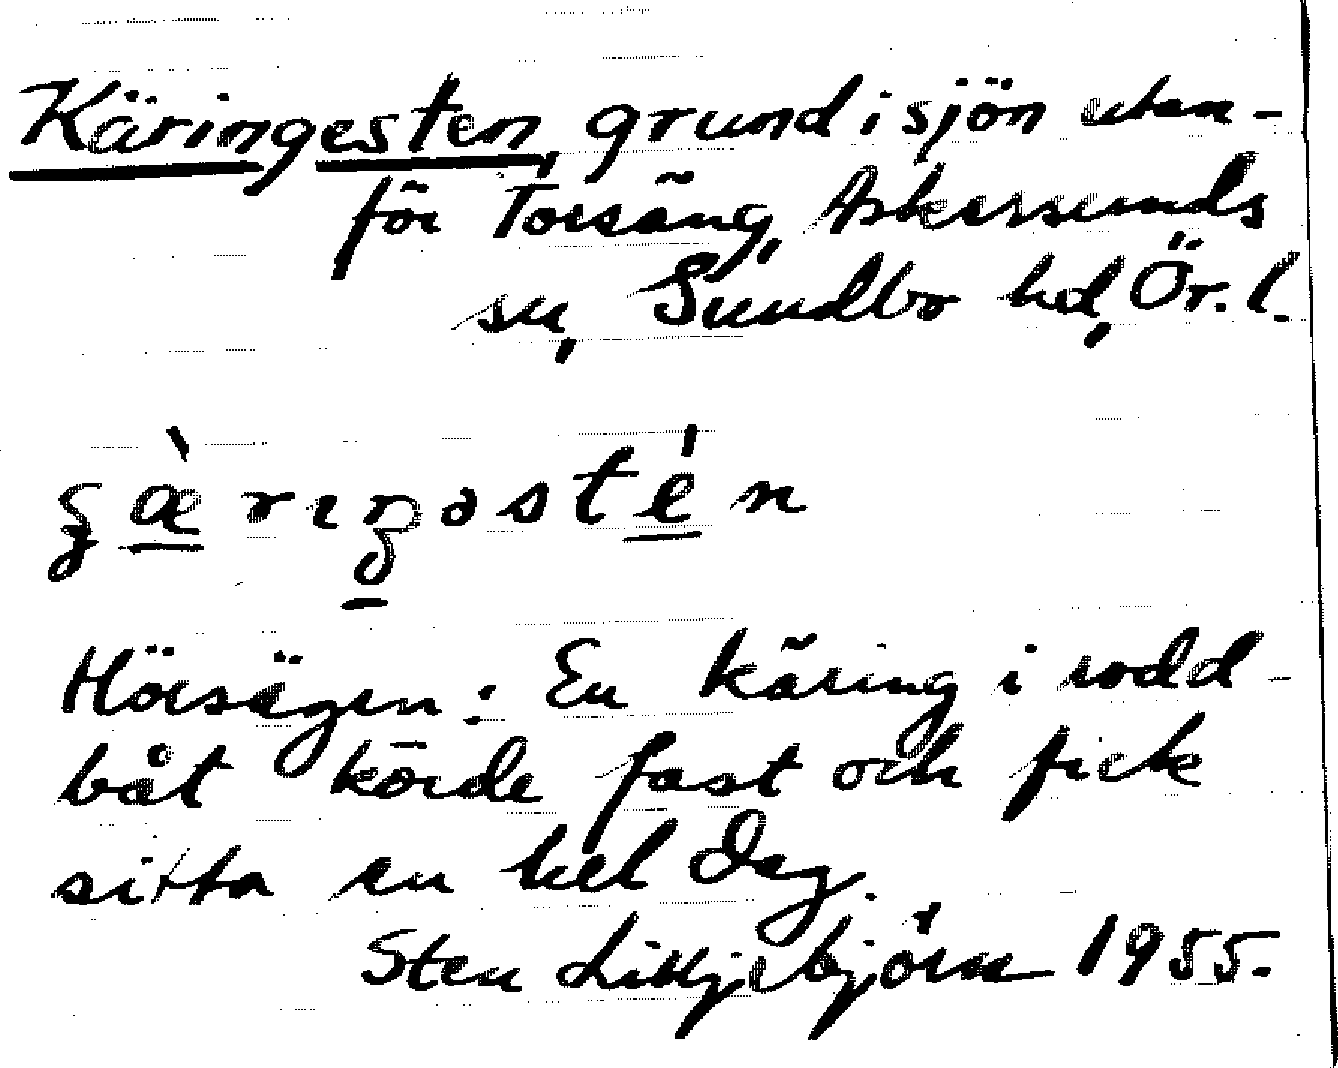 Käringesten, grund i sjön utan-
för Torsäng, Askersunds
sn, Sundbo hd, Ör. l.
Hörsägen: En käring i rodd-
båt körde fast och fick
sitta en hel dag.
Sten Lilljebjörn 1955.